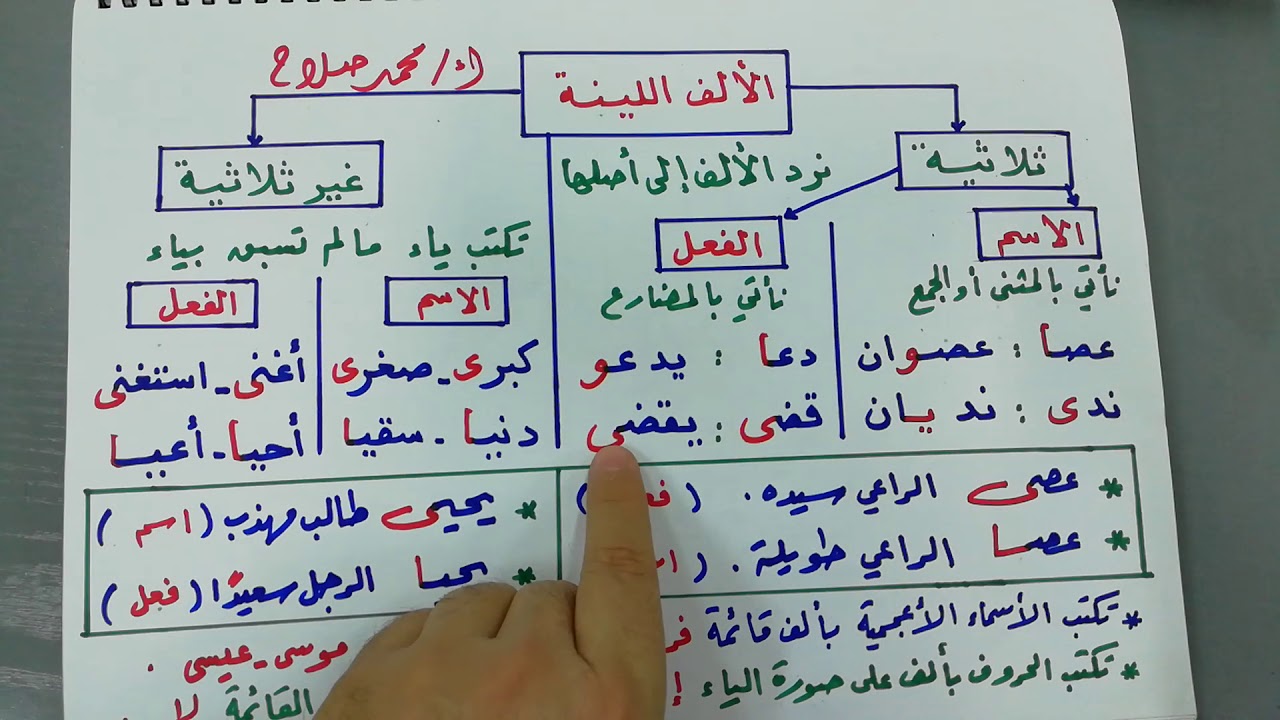 الألف اللينة
أ/ محمد صلاح
ثلاثية
نرد الألف إلى أصلها
الاسم
نأتي بالمثنى أو الجمع
عصا : عصوان
ندى : نديان
الفعل
نأتي بالمضارع
دعا : يدعو
قضى : يقضي
غير ثلاثية
تكتب ياء مالم تسبق بياء
الاسم
كبرى - صغرى
دنيا - سقيا
الفعل
أغنى - استغنى
أحيا - أعيا
* عصى الراعي سيده . (
* عصا الراعي طويلة . (
* يحيى طالب مهذب ( اسم )
* يحيا الرجل سعيدًا ( فعل )
* تكتب الأسماء الأعجمية بألف قائمة موسى - عيسى .
* تكتب الحروف بألف على صورة الياء القائمة لا